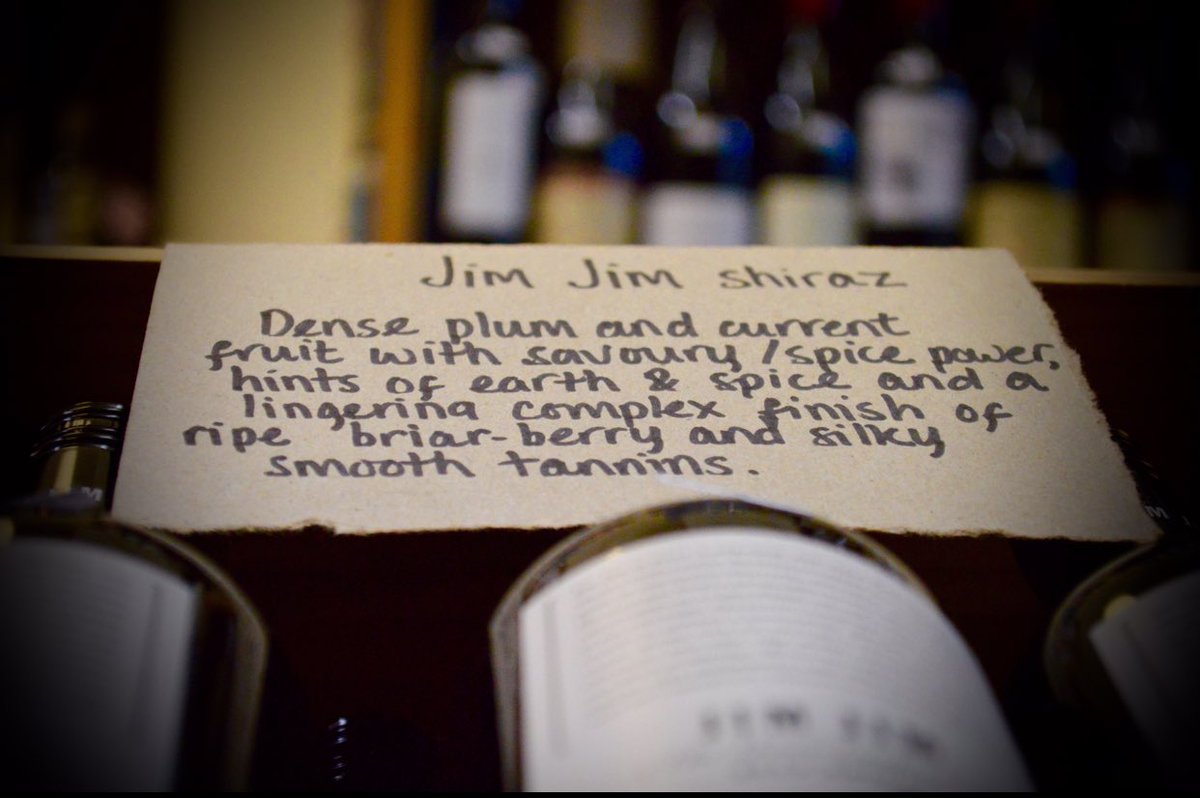 Jim Jim shiraz
Dense plum and current
fruit with savoury/spice power,
hints of earth & spice and a
lingering complex finish of
ripe briar-berry and silky
smooth tannins.
JIM JIM